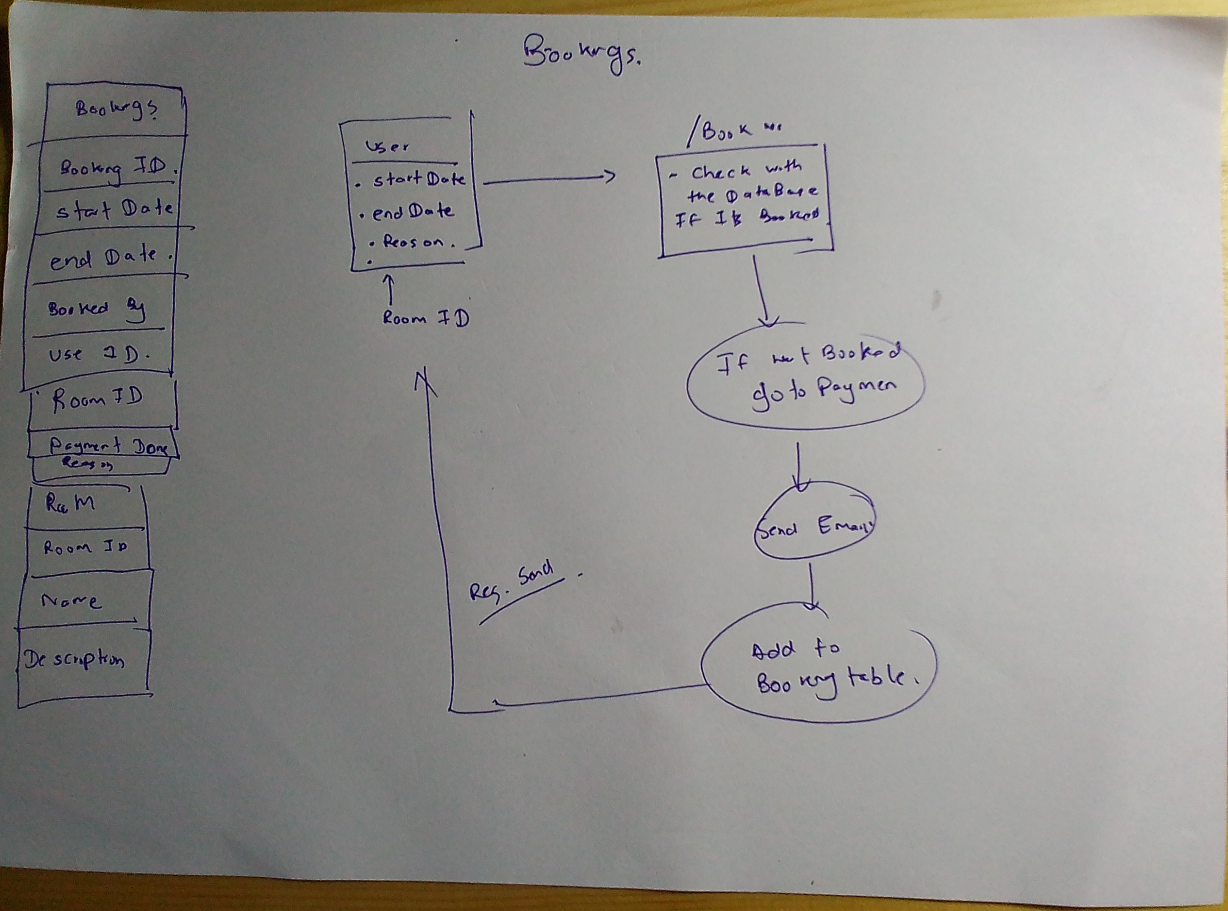 Bookings.
Bookings
Booking ID.
start Date
end Date.
Booked By
Use ID.
Room ID
Payment Done
Reason
Room ID
Name
Description
User
• start Date
• end Date
• Reason.
•
Room ID
/Book
- Check with
the DataBase
If Is Booked
If not Booked
go to Paymen
Send Email
Add to
Booking table.
Res. Send.